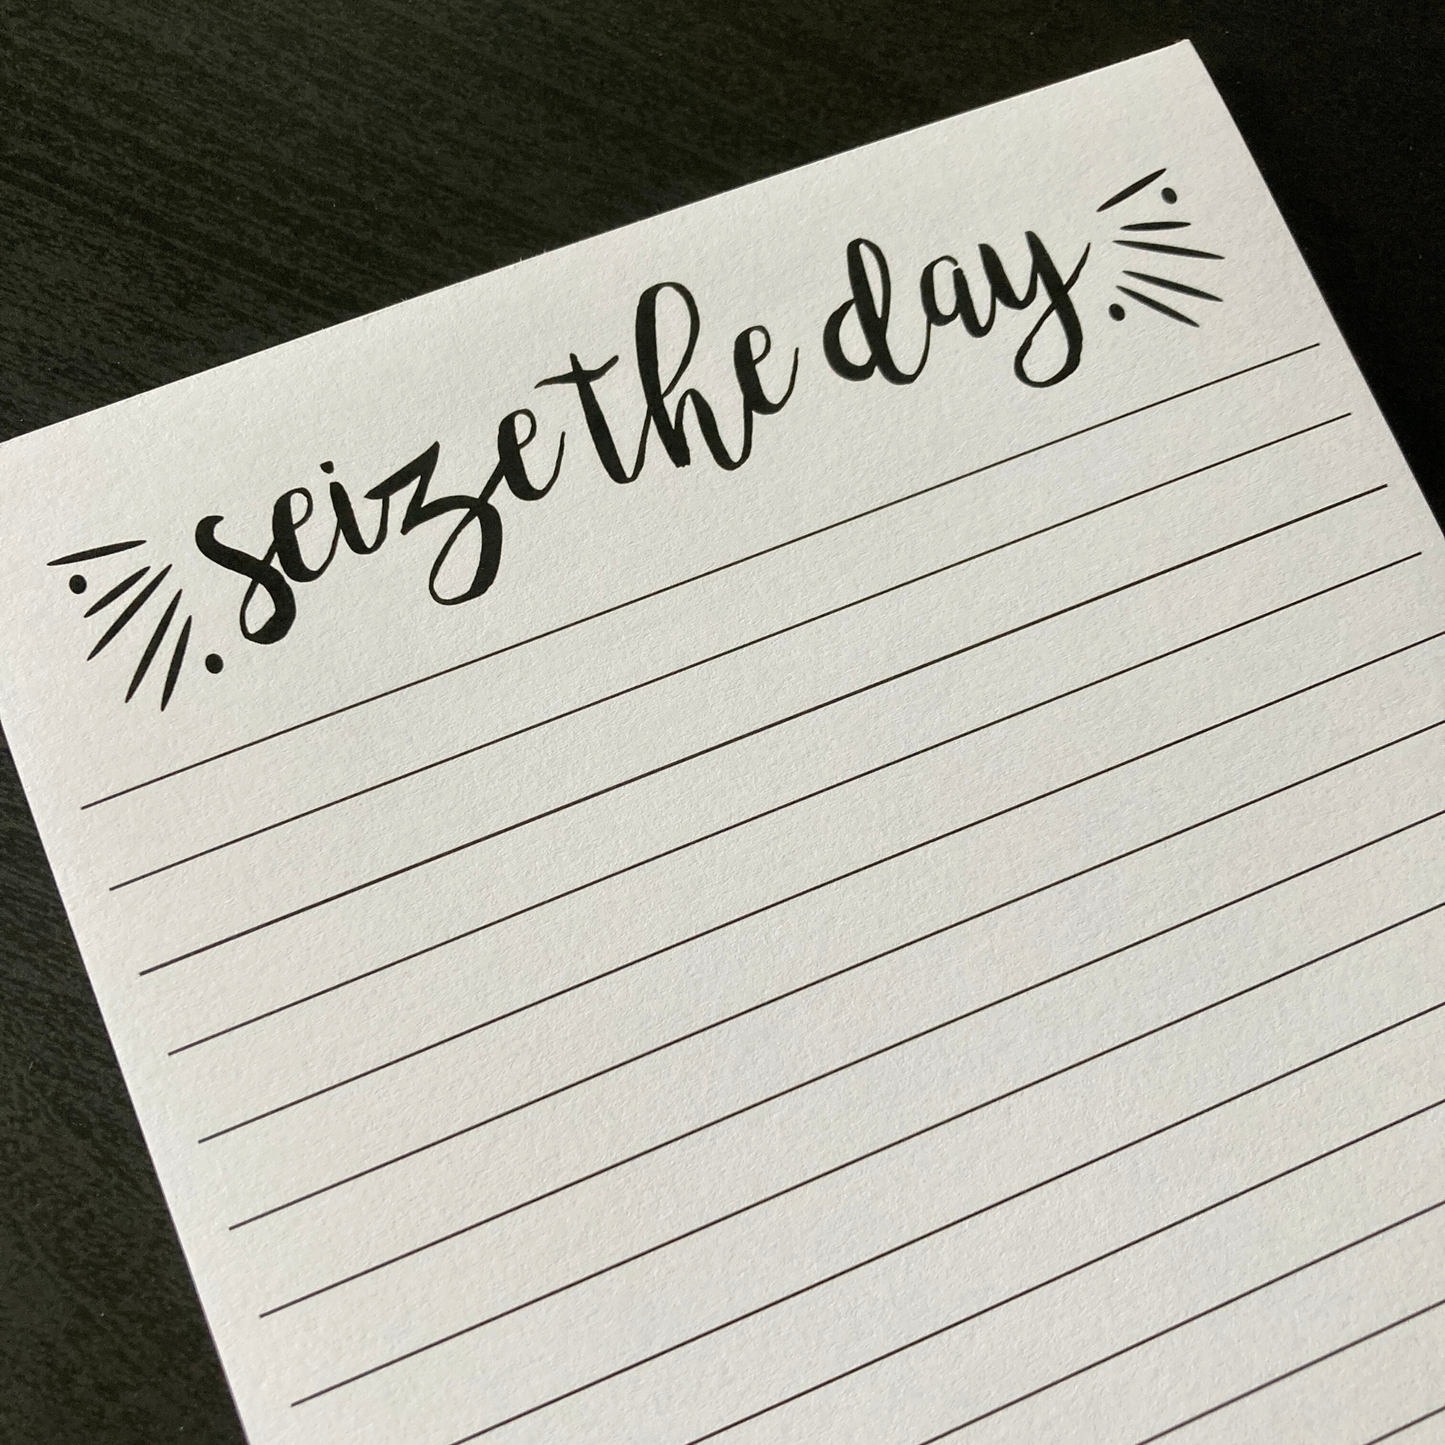 seize the day